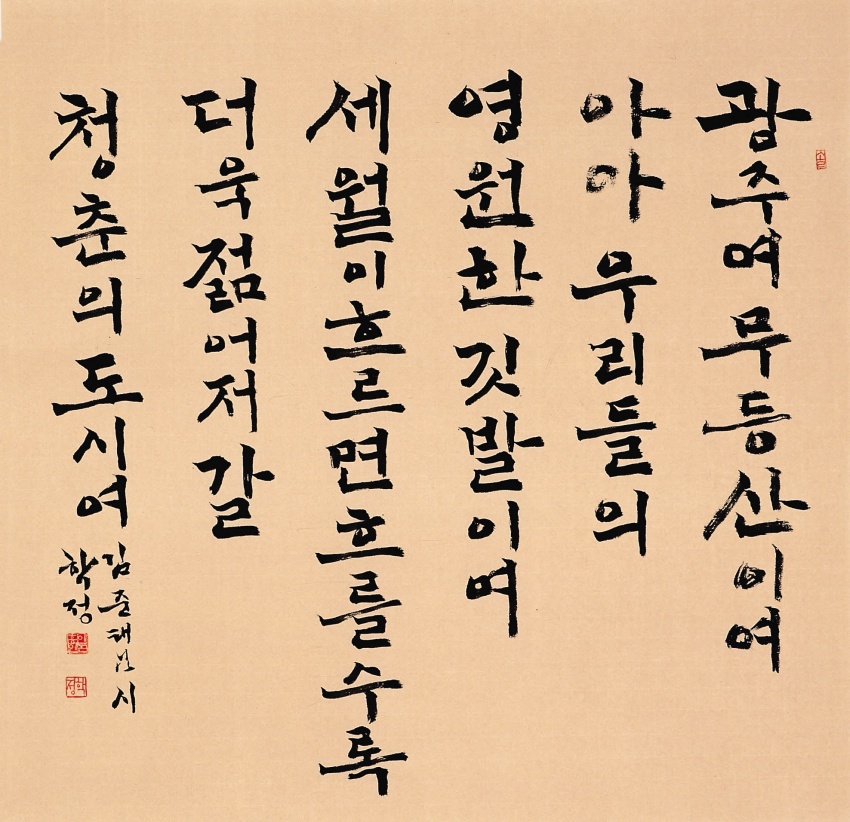 광주여 무등산이여
아아 우리들의
영원한 깃발이여
세월이 흐르면 흐를수록
더욱 젊어저 갈
청춘의 도시여
김준태님 시
학정